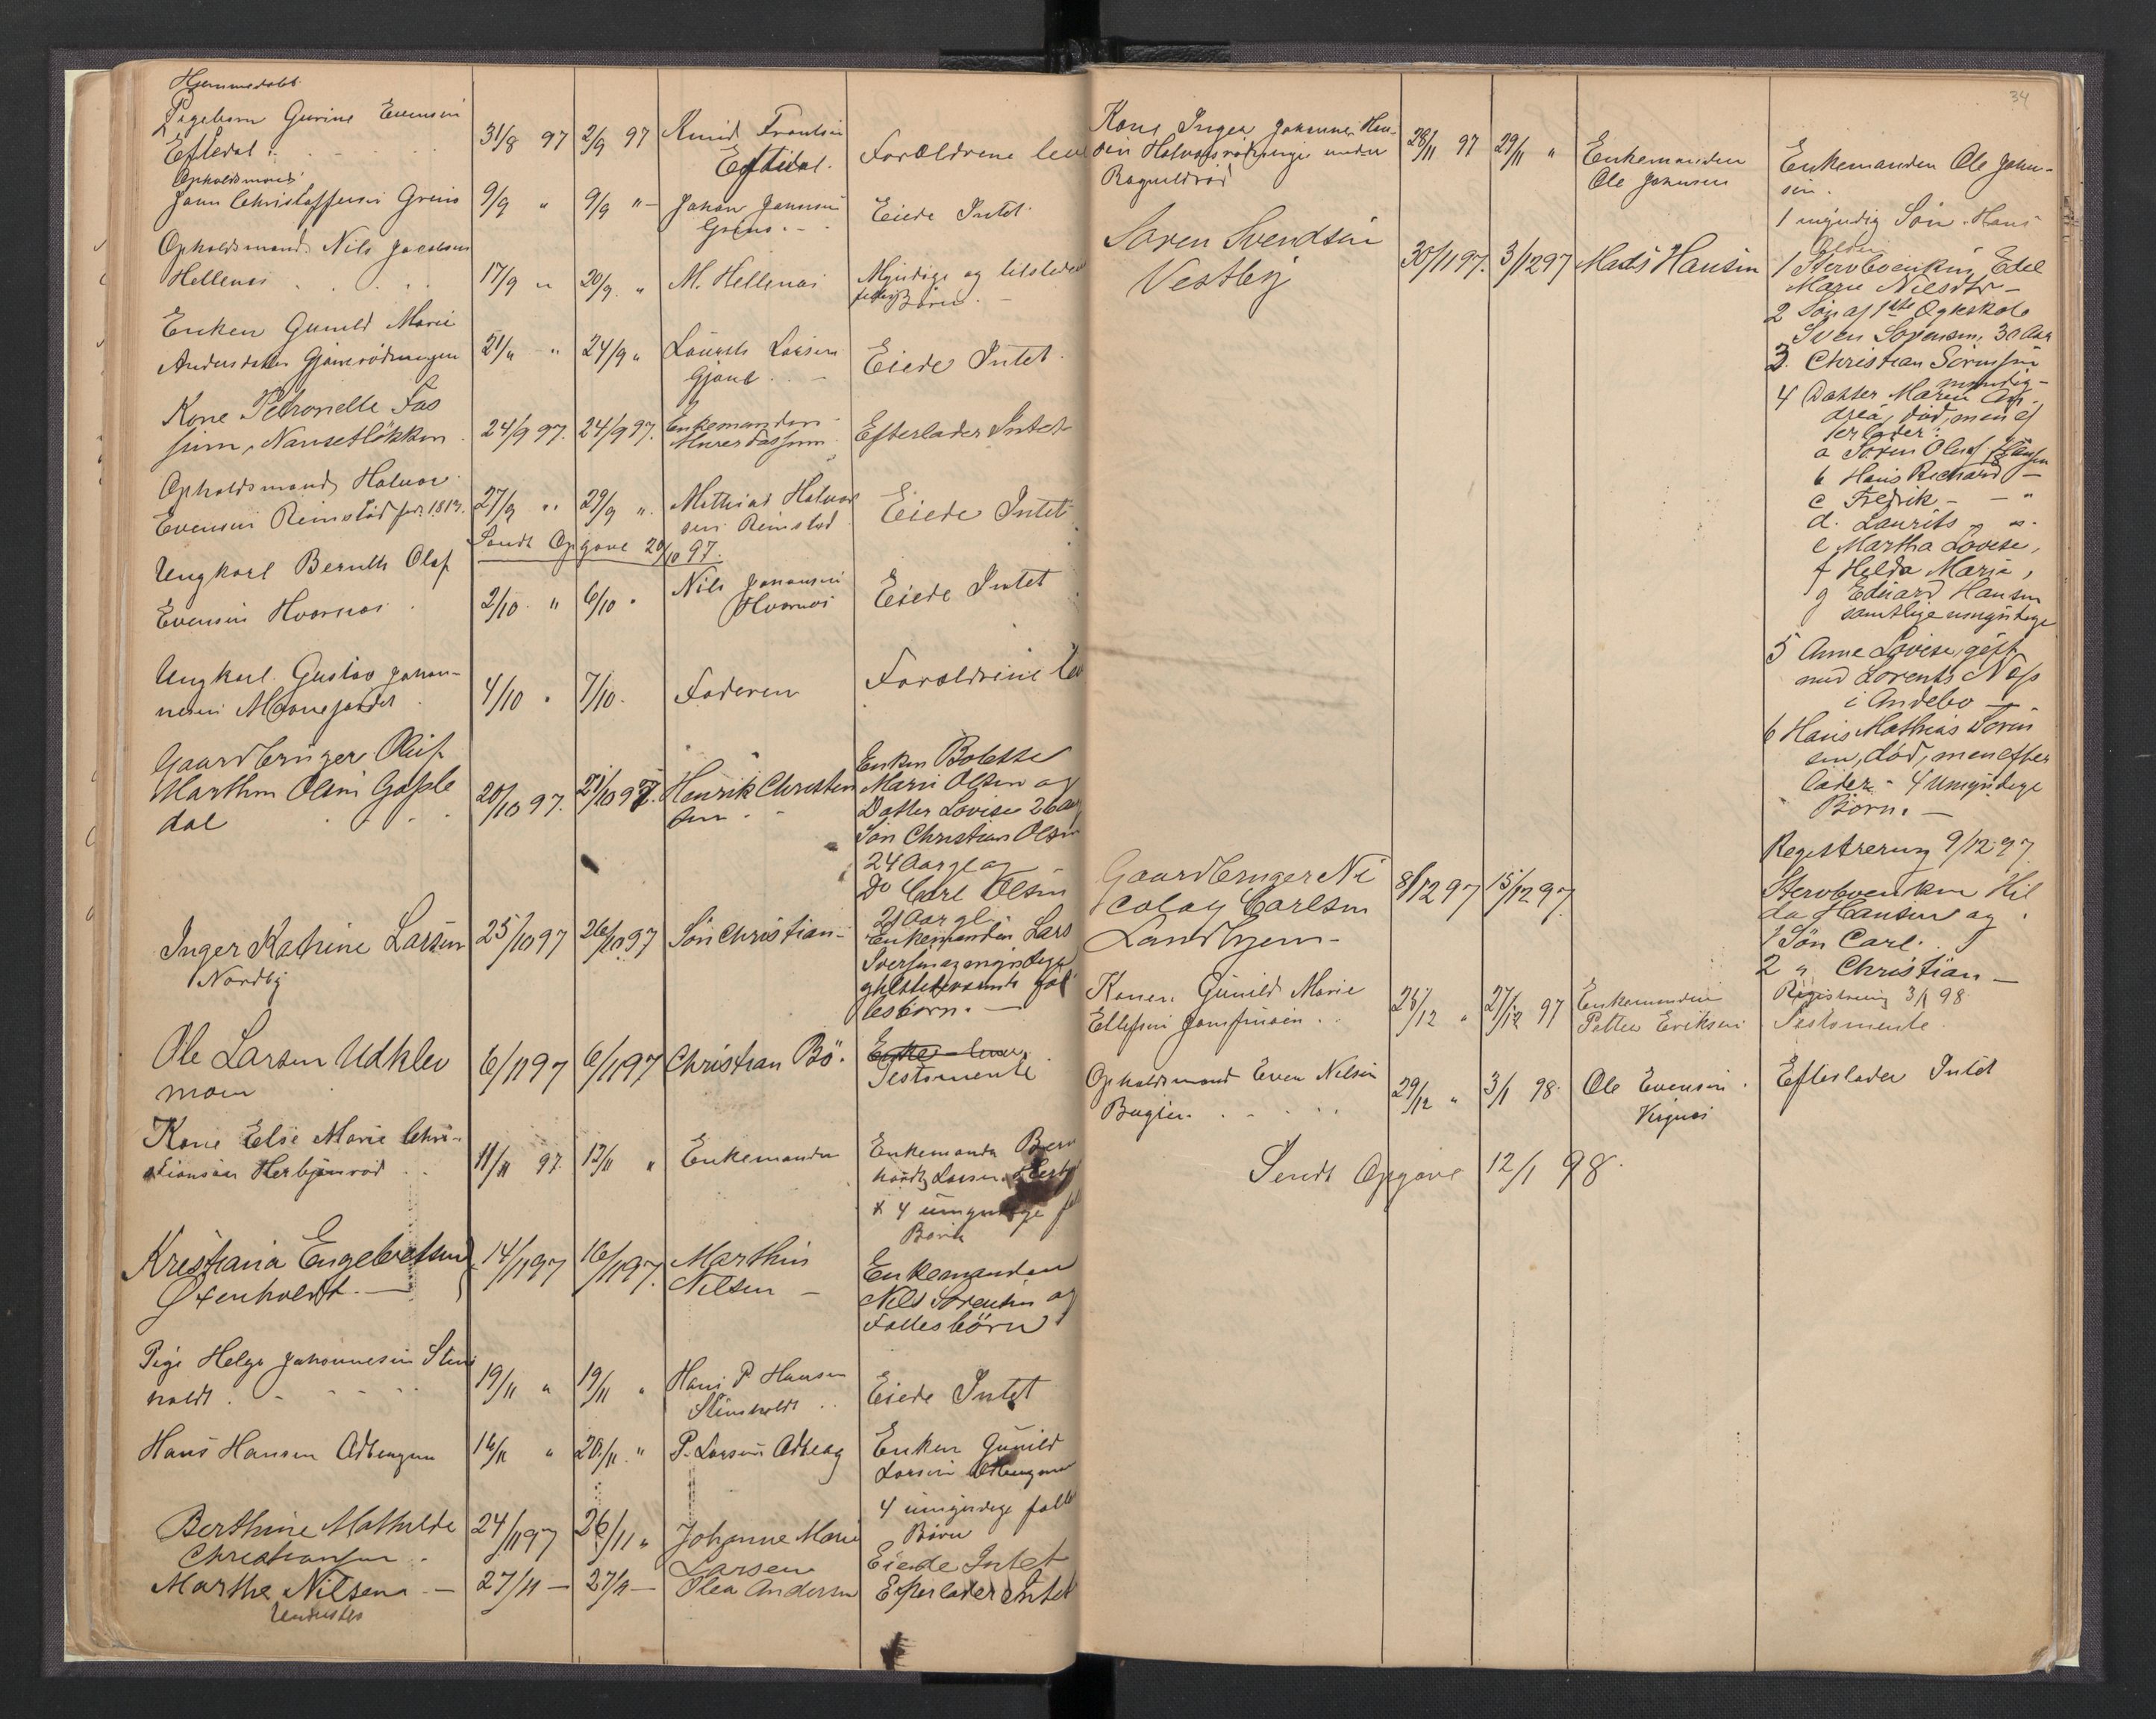 Hjemmedøbt
Pigebarn Gurine Evensen
Eftedal
31/8 97 2/9 97 Knud Frantsen
Eftedal.
Forældrene leve
Opholdsmand
Jann Christoffersen Greins 9/9 " 9/9 " Johan Jannsen
Eiede Intet
Opholdsmand Nils Jacobsen
Hellenes 17/9 " 20/9 " M. Hellenes Myndige og tilstede
Børn.
Enken Gunild Marie
Andersdatter 21/9 " 24/9 " Laurits Larsen
Gjone
Eiede Intet
Kone Petronelle Fos
sum, Nansetløkken 24/9 97. 24/9 97. Enkemanden
Murer Fossum
Efterlader Intet
Opholdsmand Halvor
Evensen Remstad født 1813. 27/9 " 29/9 ". Mathias Halvor
sen Reimstad
Eiede Intet
Sendt Opgave 20/10 97.
Ungkarl Bernth Olaf
Evensen Hvarnes 2/10 " 6/10 " Nils Johansen
Hvarnes
Eiede Intet
Ungkarl Gustav Johan-
nesen Maanejordet 4/10 " 7/10. Faderen Forældrene lev
Gaardbruger Oluf
Marthin Olsen Gople
dal 20/10 97. 21/10 97. Henrik Christen
sen
Enken Bolette
Marie Olsen og
Datter Lovise 26 Aar
Søn Christian Olsen
24 Aar gl og
Do Carl Olsen
21 Aar gl.
Inger Katrine Larsen
Nordby
25/10 97 26/10 97 Søn Christian -
Enkemanden Lars
Iversen og myndige
lesbørn. -
Ole Larsen Udklev
moen
6/11 97 6/11 97 Christian Bø.
Enke lever
Testamente
Kone Else Marie Chri-
stiansen Herbjønrød 11/11 97. 12/11 " Enkemanden
Enkemanden Bern
hardt Larsen
& 4 umyndige fæ
Børn
Kristiania Engebretsen
Øxenholdt. -
14/11 97 16/11 97. Marthin
Nilsen -
Enkemanden
Nils Sørensen og
Fællesbørn
Pige Helga Johannesen Sten
holdt. 19/11 " 19/11 " Hans P Hansen
Stensholdt
Eiede Intet
Hans Hansen Askengen 16/11 " 20/11 " P. Larsen
Enken Gunild
Larsen
4 umyndige fælle
Børn
Berthine Mathilde
Christiansen.
24/11 97 26/11 " Johanne Marie
Larsen
Eiede Intet
Marthe Nilsen - 27/11 - 27/11 - Olea Andersen Efterlader Intet
34
Kone Ingea Johanne Han-
sen under
Ragnildrød
28/11 97 29/11 " Enkemanden
Ole Johnsen
Enkemanden Ole John-
sen.
1 myndig Søn. Hans
Søren Svendsen
Vestby
30/11 97. 3/12 97 Mads Hansen
1 Stervboenken Edel
Marie Nilsdtr -
2 Søn af 1ste Ægteskab
Sven Sørensen, 30 Aar
3. Christian Sørensen
myndig -
4 Datter Maren An-
drea, død, men ef
terlader:
a Søren Oluf Hansen
b Hans Richard -
c Fredrik - - "
d. Laurits " ".
e Martha Lovise,
f Helda Marie,
g Edvard Hansen
samtlige umyndige
5 Anne Lovise, gift
med Lorents Næs
i Andebo -
6 Hans Mathias Søren
sen, død, men efter
lader - 4 umyndige
Børn. -
Registrering 9/12 97
Gaardbruger Ni
colay Carlsen
Landhjem -
8/12 97 15/12 97.
Stervboenken Hil
da Hansen og
1 Søn Carl.
2 " Christian -
Registrering 3/1 98
Konen Gunild Marie
Ellefsen 27/12 97 Enkemanden
Petter Eriksen
Testamente
Opholdsmand Even Nilsen
29/12 " 3/1 98. Ole Evensen
Efterlader Intet
Sendt Opgave 12/1 98.